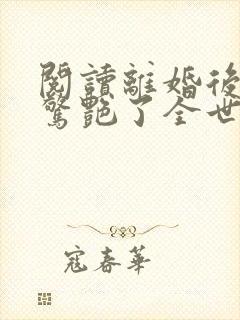 閱讀離婚後
驚艷了全世
寇春華